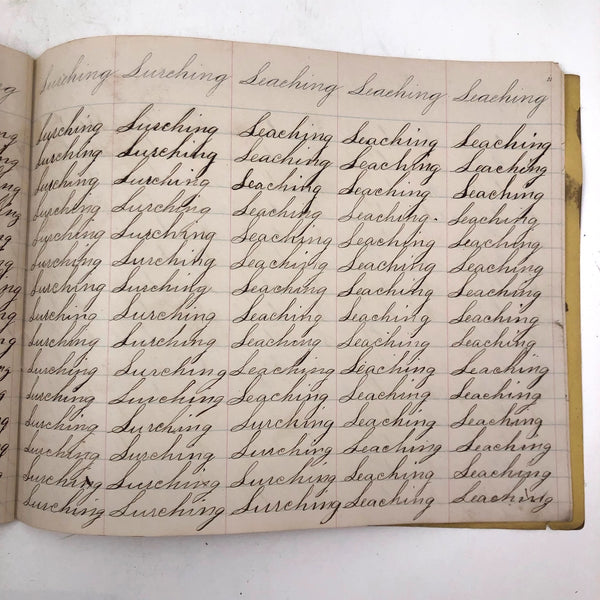 Lurching Lurching Leaching Leaching Leaching
Lurching Lurching Leaching Leaching Leaching
Lurching Lurching Leaching Leaching Leaching
Lurching Lurching Leaching Leaching Leaching
Lurching Lurching Leaching Leaching. Leaching
Lurching Lurching Leaching Leaching Leaching
Lurching Lurching Leaching Leaching Leaching
Lurching Lurching Leaching Leaching Leaching
Lurching Lurching Leaching Leaching Leaching
Lurching Lurching Leaching Leaching Leaching
Lurching Lurching Leaching Leaching Leaching
Lurching Lurching Leaching Leaching Leaching
Lurching Lurching Lurching Leaching Leaching
Lurching Lurching Lurching Leaching Leaching
Lurching Lurching Lurching Leaching Leaching
Lurching Lurching Lurching Leaching Leaching